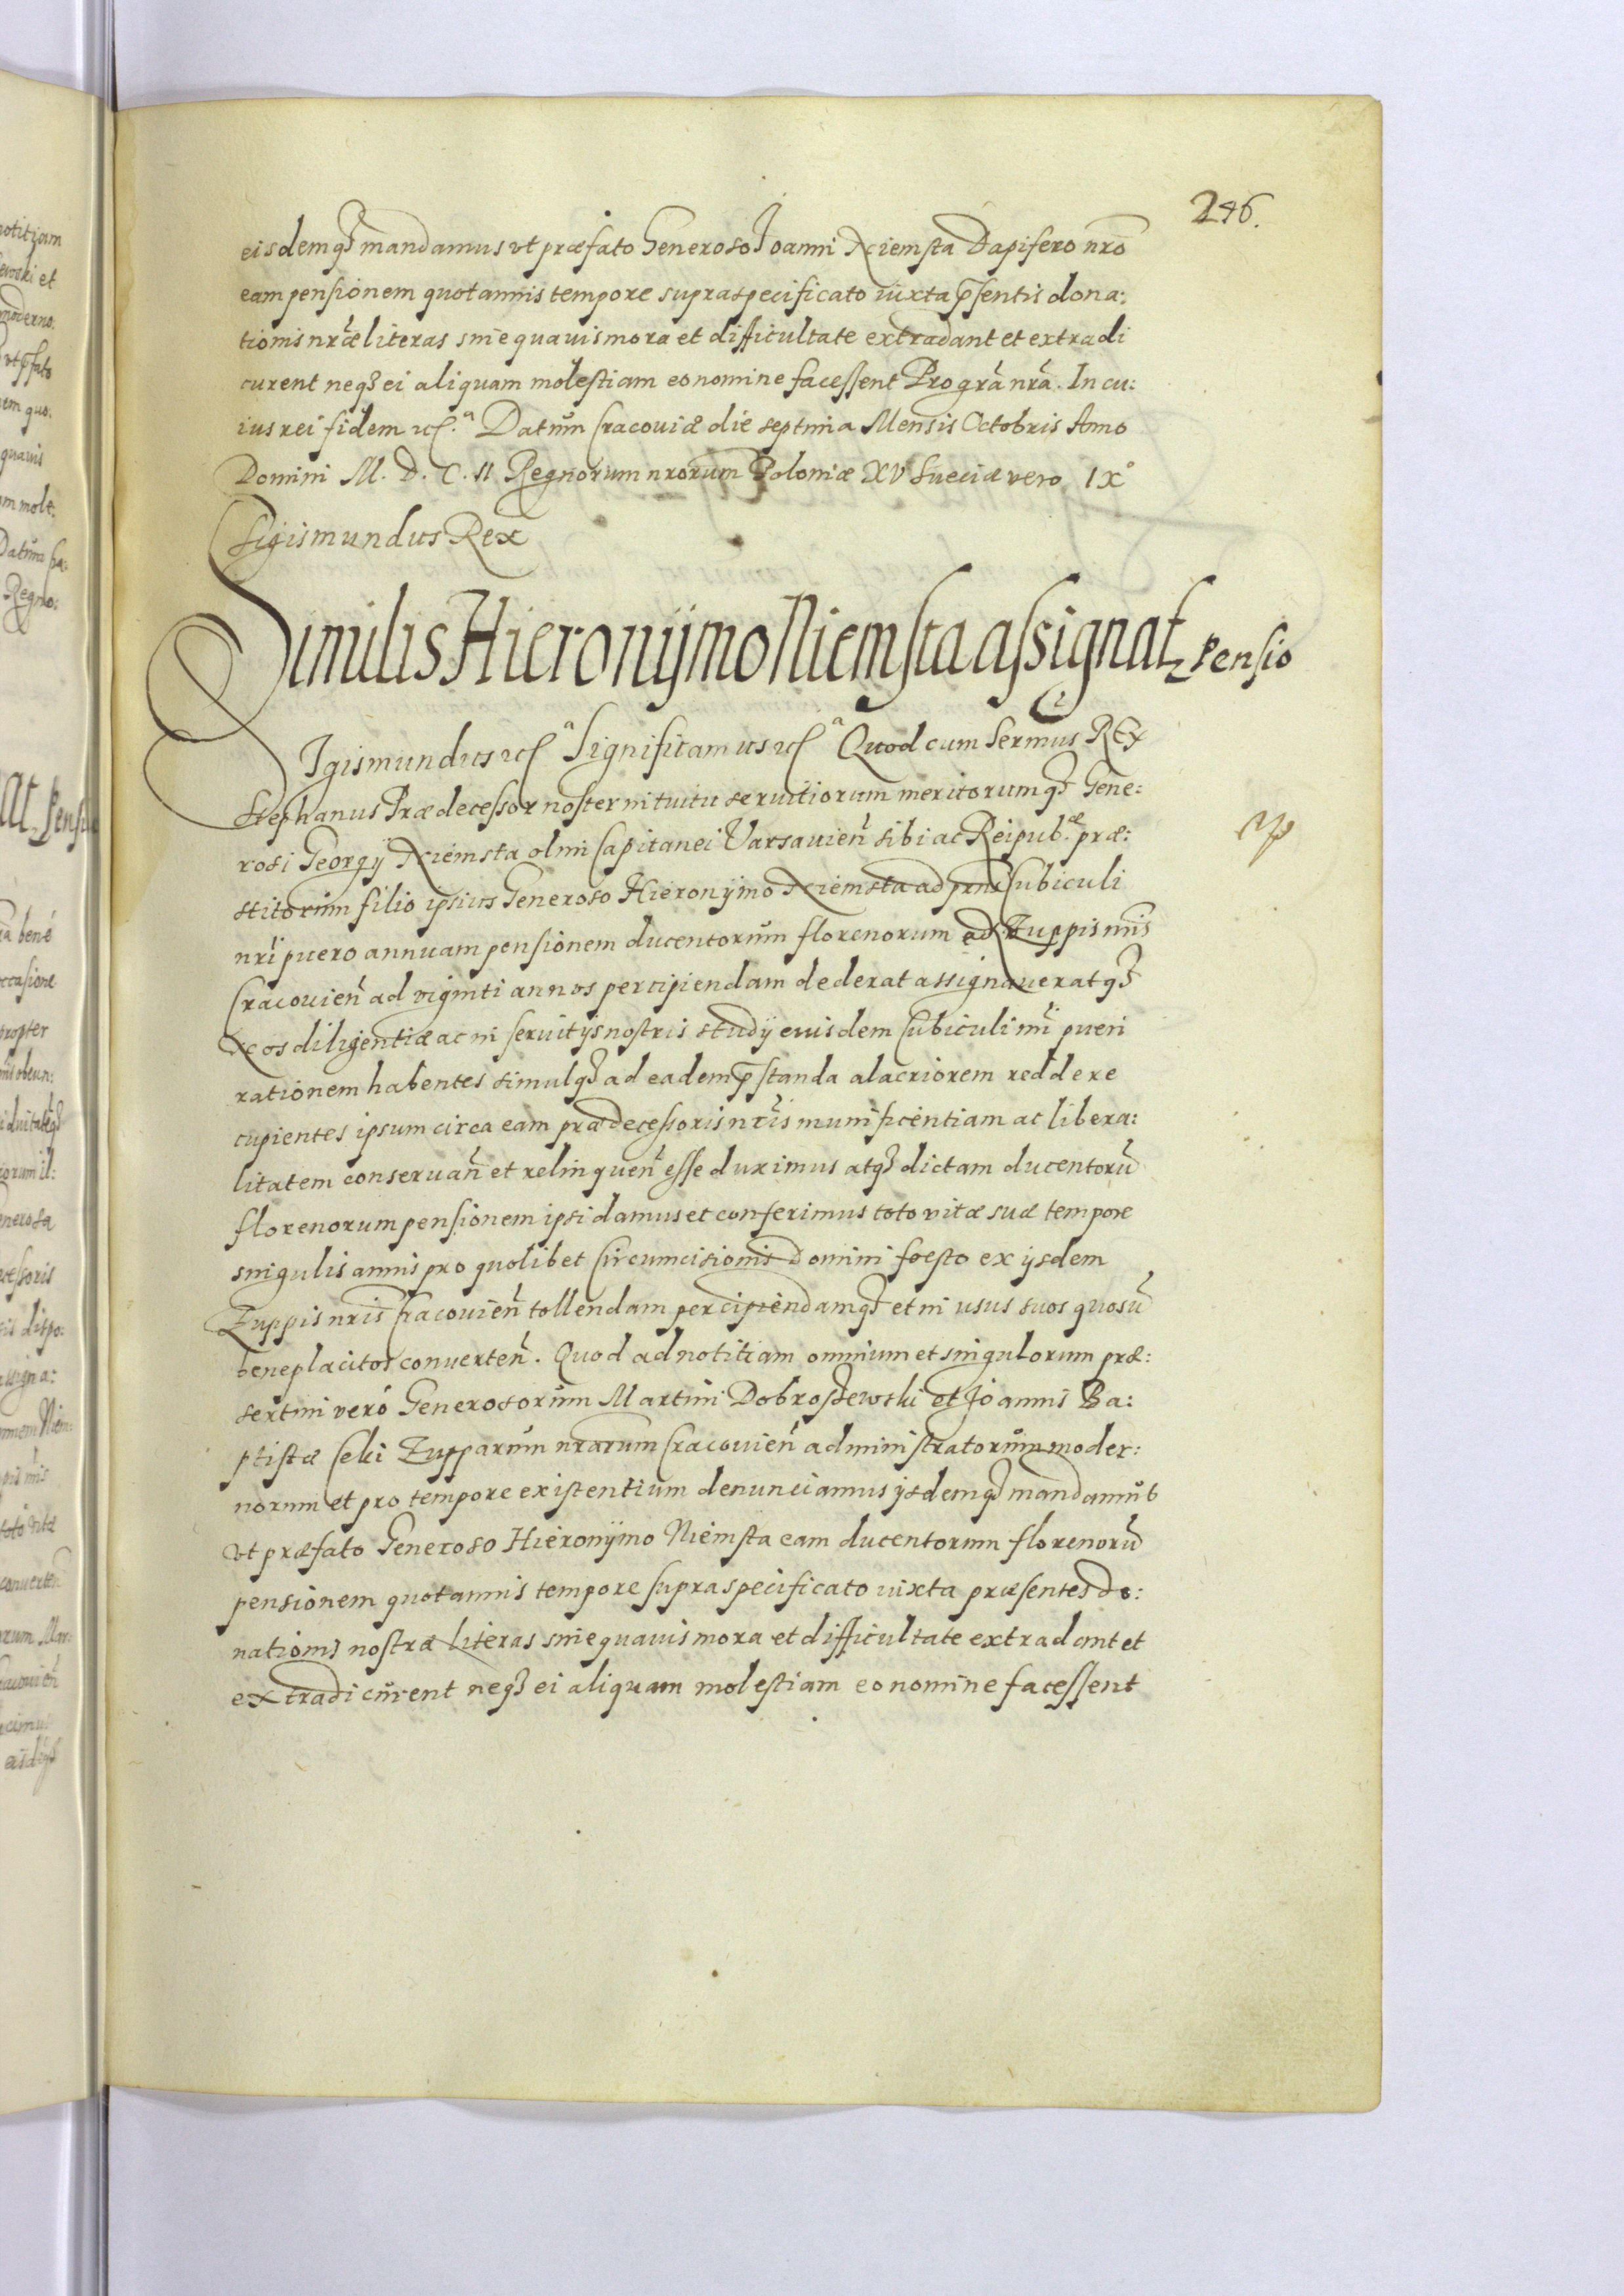 246.
eisdemq̃ mandamus vt præfato Generoso Joanni Niemsta Dapifero nrõ
eam pensionem quotannis tempore supraspecificato iuxta p̃sentis dona:
tionis nr̃æ literas sine quauis mora et difficultate extradant et extradi
curent neq̃ ei aliquam molestiam eo nomine facessent Pro grã nrã. In cu:
ius rei fidem etc.ª Datum Cracouiæ die septima Mensis Octobris Anno
Domini M. D. C. II Regnorum nrorum Poloniæ XV Sueciæ vero IX°
Sigismundus Rex
Similis Hieronÿmo Niemsta assignat Pensio
Igismundus etc.ª Significamus etc.ª Quod cum Sermus REx
Stephanus Prædecessor noster intuitu seruitiorum meritorumq̃ Gene:
rosi Georgÿ Niemsta olim Capitanei Varsauieñ sibi ac Reipub.æ præ:
stitorum filio ipsius Generoso Hieronÿmo Niemsta ad prñs Cubiculi
nrĩ puero annuam pensionem ducentorũm florenorum ex Zuppis nrĩs
Cracouieñ ad viginti annos percipiendam dederat assignaueratq̃
Nos diligentiæ ac in seruitÿs nostris studÿ euisdem Cubiculi nrĩ pueri
rationem habentes simulq̃ ad eadem p̃standa alacriorem reddere
cupientes ipsum circa eam prædecessoris nrĩs munificentiam ac libera:
litatem conseruañ et relinqueñ esse duximus atq̃ dictam ducentorũ
florenorum pensionem ipsi damus et conferimus toto vitæ suæ tempore
singulis annis pro quolibet Circumcisionis Domini foesto ex ÿsdem
Zuppis nrĩs Cracouieñ tollendam percipiendamq̃ et in usus suos quosũ
beneplacitos conuerteñ. Quod ad notitiam omnium et singulorum præ:
sertim veró Generosorum Martini Dobroszewski et Joannis Ba:
ptistæ Ceki Zupparum nrarum Cracouieñ administratorum moder:
norum et pro tempore existentium denunciamus ÿsdemq̃ mandamus
vt præfato Generoso Hieronÿmo Niemsta eam ducentorum florenorũ
pensionem quotannis tempore supraspecificato iuxta præsentes do:
nationis nostræ literas sine quauis mora et difficultate extradant et
extradi curent neq̃ ei aliquam molestiam eo nomine facessent